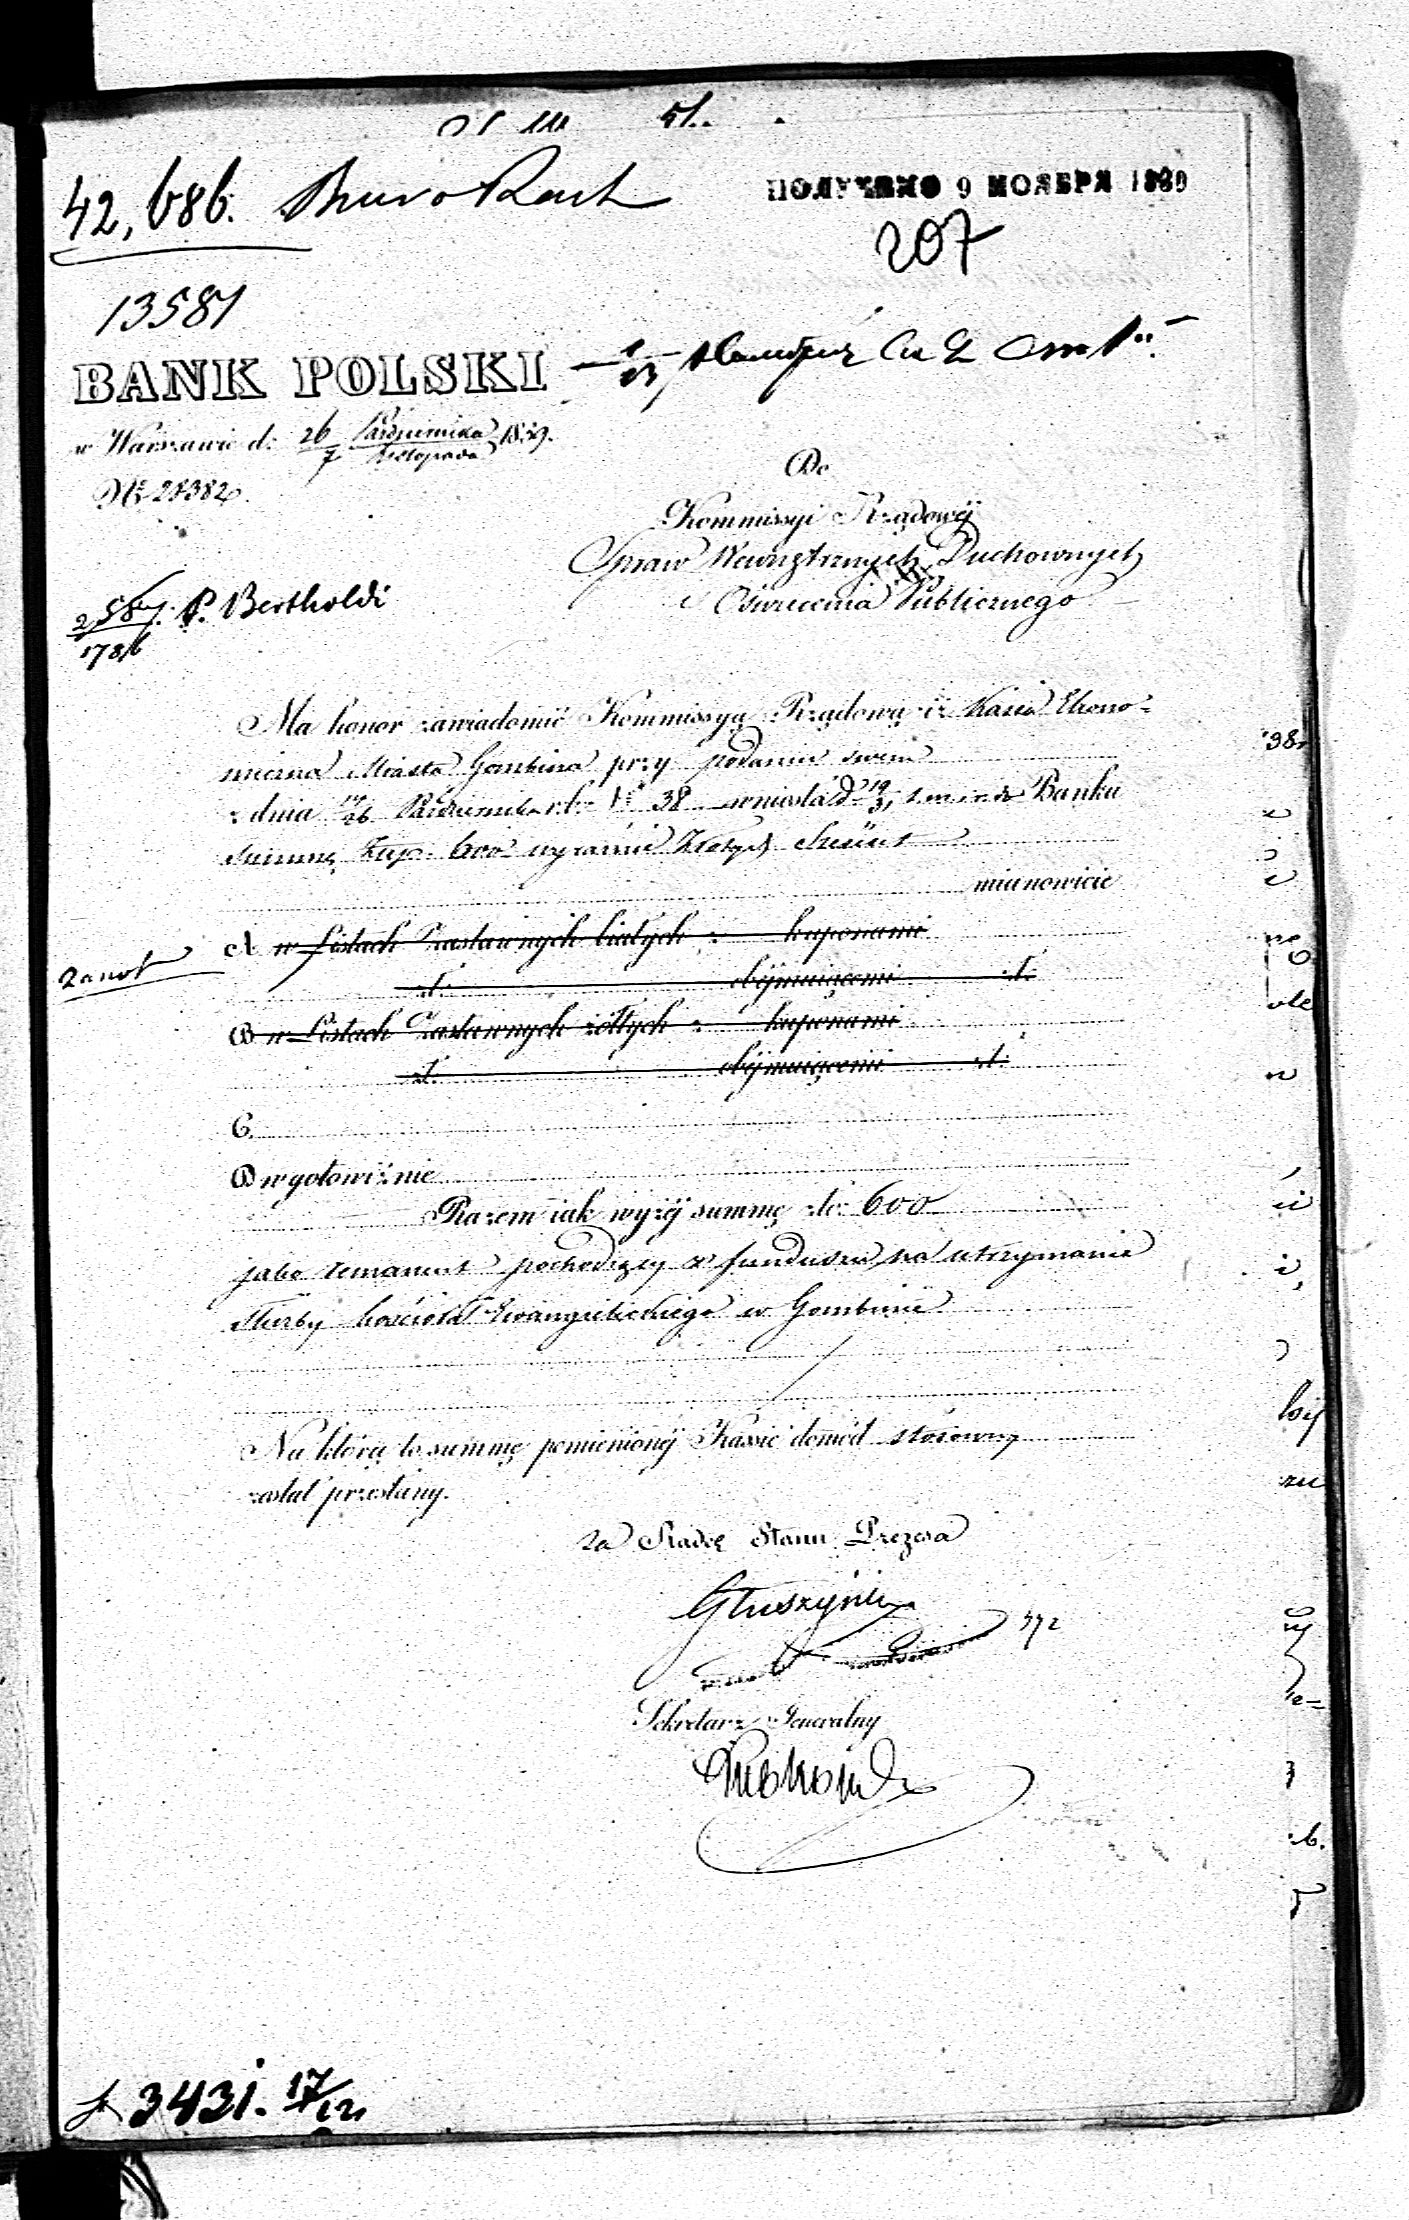 51.
42,686. Biuro Rach
ПОЛУЧЕНО 9 НОЯБРЯ 1839
207
13581
BANK POLSKI
w Warszawie d: 26/7 Października/Listopada 1839.
Nr 28382
Do
Kommissyi Rządowéj
Spraw Wewnętrznych, Duchownych
i Oświecenia Publicznego
P. Bertholdi
Ma honor zawiadomić Kommissyą Rządową iż Kassa Ekono=
miczna Miasta Gombina przy podaniu swem
z dnia 14/26 Października r. b. Nr 38 wniosła d. 19/31 t. m. i r. do Banku
Summę Złp. 600 wyraźnie Złotych Sześćset
mianowicie
A w Listach Zastawnych białych z kuponami
zł. obejmującemi zł.
Zanot
B w Listach Zastawnych żółtych z kuponami
zł. obejmującemi zł.
C.
D w gotowiźnie
Razem iak wyżéj summę złp. 600
jako remanent pochodzący z funduszu na utrzymanie
służby kościoła Ewangelickiego w Gombinie
Na którą to summę pomienionéj Kassie dowód stosowny
został przesłany.
za Radcę Stanu Prezesa
Głuszyński
572
Sekretarz Generalny
3431. 17/12